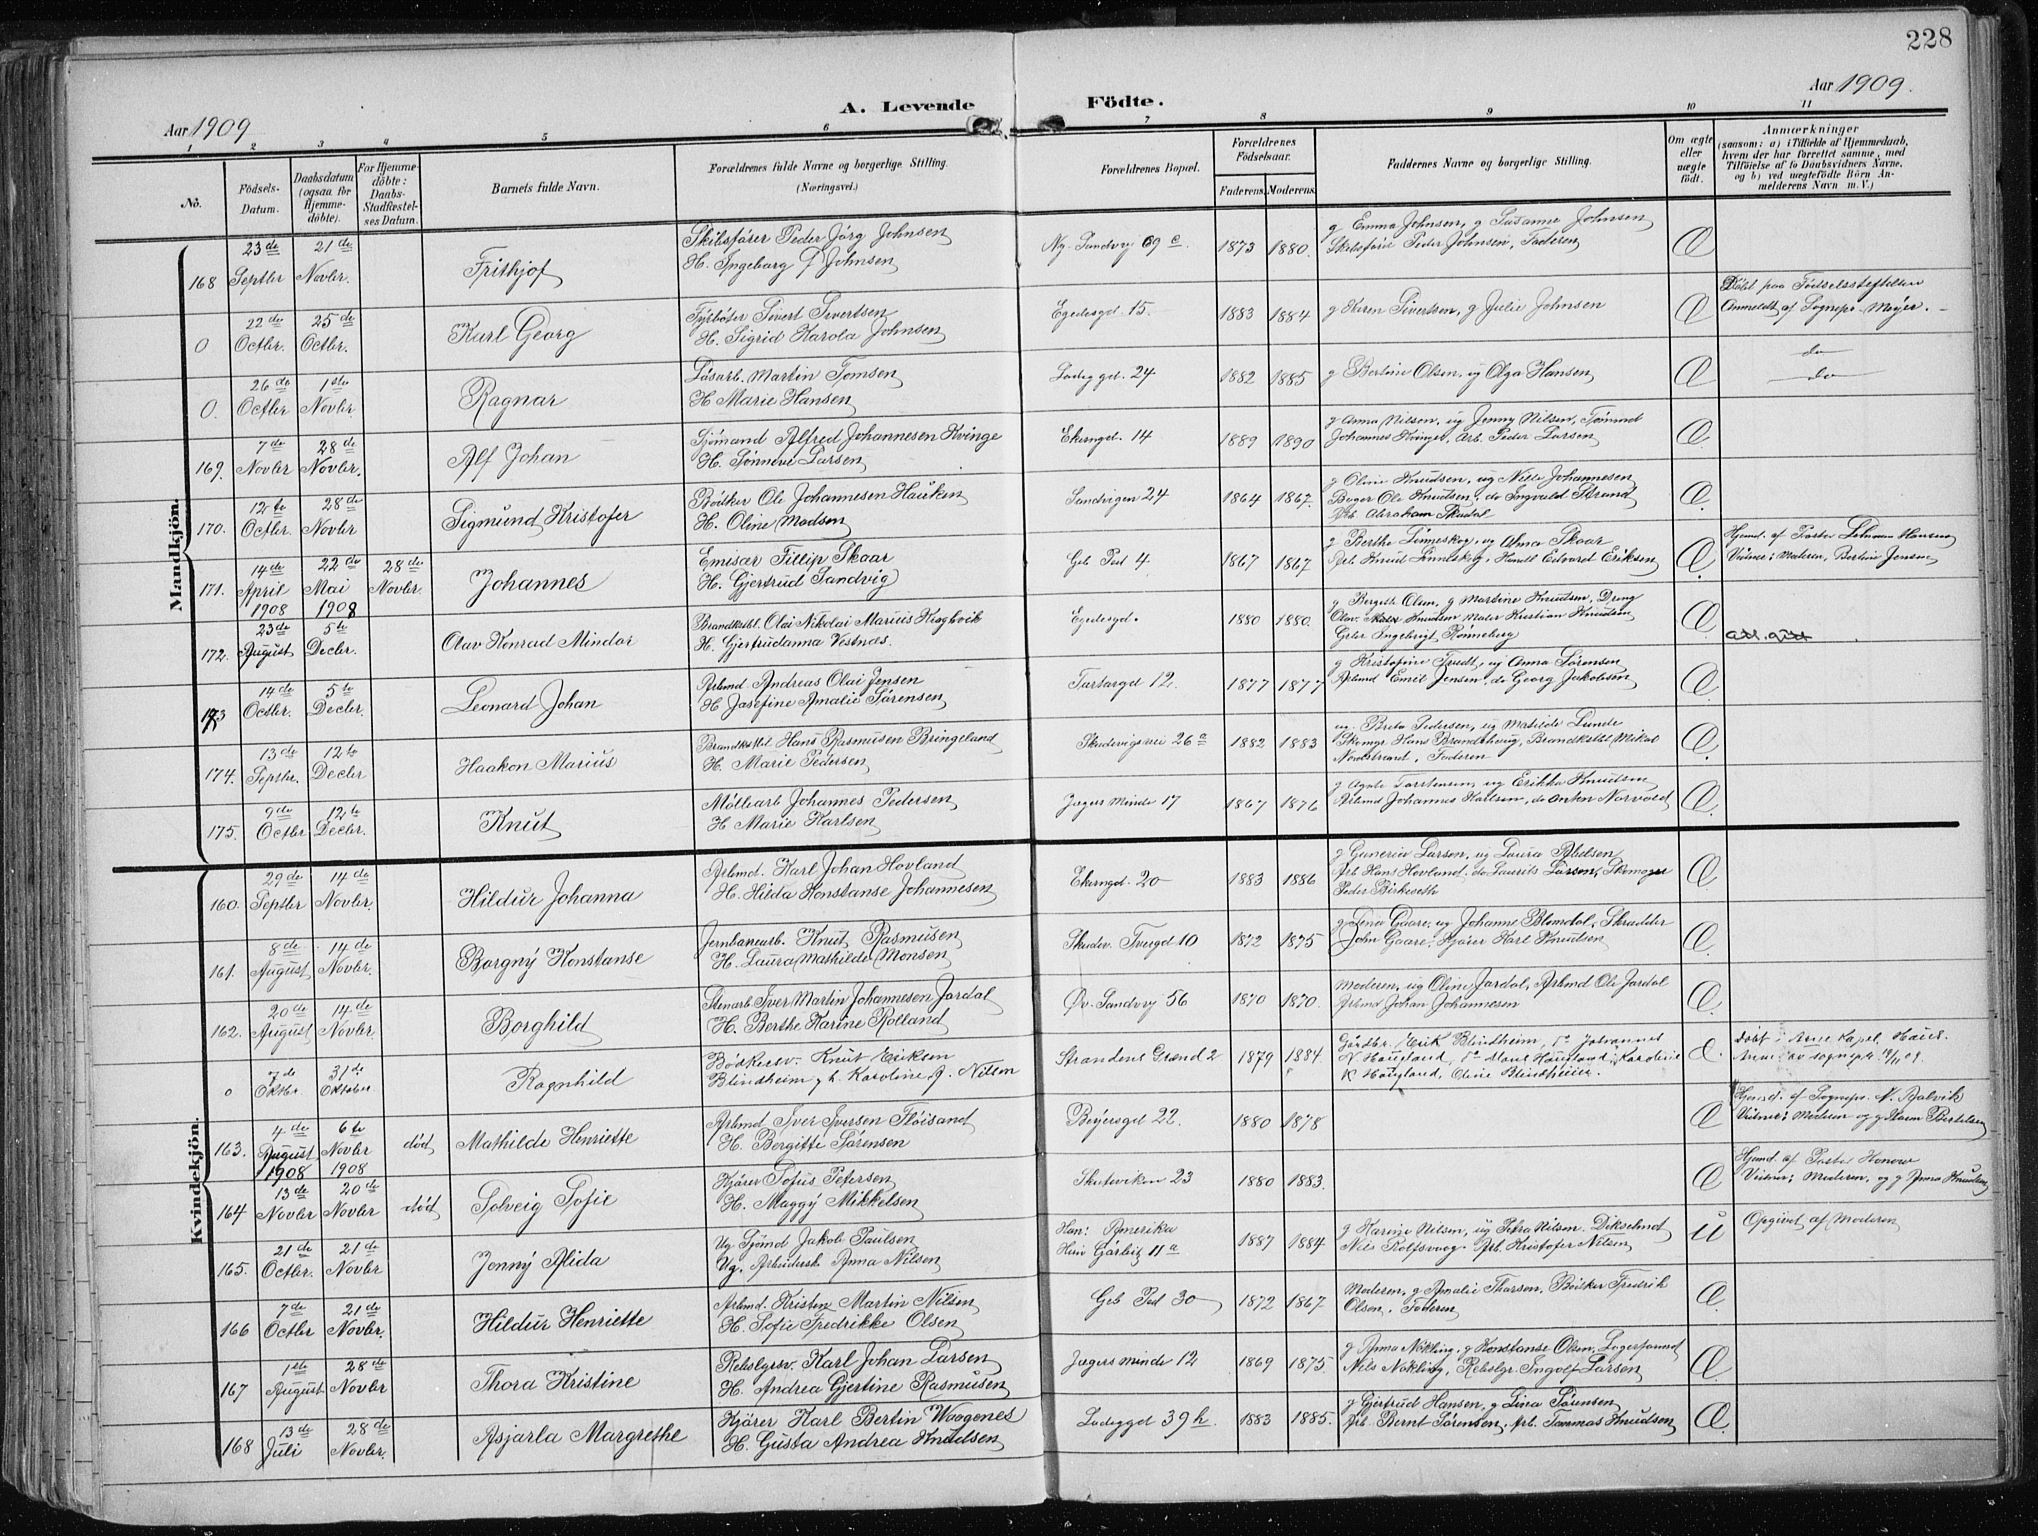 228
Aar 1909
A. Levende Födte.
Aar 1909.
1 2 3 4 5 6 7 8 9 10 11
No.
Födsels-Datum.
Daabsdatum (ogsaa for Hjemmedöbte).
For Hjemmedöbte: Daabs-Stadfæstelses Datum.
Barnets fulde Navn.
Forældrenes fulde Navne og borgerlige Stilling.
(Næringsvei.)
Forældrenes Bopæl.
Forældrenes Födselsaar.
Faderens. Moderens.
Faddernes Navne og borgerlige Stilling.
Om ægte eller uægte födt.
Anmærkninger
(saasom: a) i Tilfælde af Hjemmedaab, hvem der har forrettet samme, med Tilföielse af to Daabsvidners Navne, og b) ved uægtefödte Börn Anmelderens Navn m. V.)
Mandkjön.
168 23de Septbr 21de Novbr. Frithjof
Skibsfører Peder Jörg Johnsen
H. Ingeborg Johnsen
Ng. Sandvg 69 c. 1873 1880.
g Emma Johnsen, g Susanne Johnsen
Skibsfører Peder Johnsen, Faderen
Æ
0 22de Octbr. 25de Octbr. Karl Georg
Fyrbøter Sivert Sivertsen
H. Sigrid Karola Johnsen
Egedesgd. 15. 1883 1884
g Karen Sivertsen, g Julie Johnsen
Æ
Döbt paa Födselsstiftelsen
Anmeldt af Sognepr. Meyer.
0. 26de Octbr 1ste Novbr. Ragnar
Løsarb. Martin Tomsen
H Marie Hansen
Ladeggd. 24 1882 1885
g Bertine Olsen, ug Olga Hansen
Æ
do
do
169. 7de Novbr 28de Novbr. Alf Johan
Sjömand Alfred Johannesen Kvinge
H. Sönneve Larsen
Ekrengd. 14 1889 1890
g Anna Nilsen, ug Jenny Nilsen, Sjömand
Johannes Kvinge, Arb. Peder Larsen
Æ
170. 12te Octbr. 28de Novbr Sigmund Kristofer
Bödker Ole Johannesen Hauken
H. Oline Madsen
Sandvigen 24 1864 1867.
g Oline Knudsen, ug Nille Johannesen
Bager Ole Knudsen, do Ingvald Strand
Arb. Abraham Skudal
Æ
171. 14de April 1908 22de Mai 1908 28de Novbr. Johannes
Emisær Fillip Skaar
H. Gjertrud Sandvig
Geb Pod 4. 1867 1867
g Berthe Linneskog, ug Alma Skaar
Arb. Knud Linneskog, Handl Edvard Eriksen
Æ
Hjemd. af Pastor Lehmann Hansen
Vidner: Moderen, Bertine Jensen
172. 23de August 5te Decbr. Olav Konrad Mindor
Brandkstbl. Olai Nikolai Marius Hagbvik
H. Gjertrudanna Vestnæs.
Egedesgd. 1880 1880.
g Bergith Olsen, g Martine Knudsen, Dreng
Olav Knudsen Maler Kristian Knudsen
Geler Ingebrigt Rönneberg
Æ
att. gitt
173 14de Octbr. 5te Decbr. Leonard Johan
Arbmd Andreas Olai Jensen
H Josefine Amalie Sörensen
Tartargd 12. 1877 1877
g Kristofine Tvedt, ug Anna Sörensen
Arbmd Emil Jensen, do Georg Jakobsen
Æ
174. 13de Septbr. 12te Decbr Haakon Marius
Brandkstbl Hans Rasmusen Bringeland
H. Marie Pedersen
Skudevigsvei 26a 1882 1883
ug. Breta Pedersen, ug Matilde Lunde
Skomgr. Hans Brandshaug, Brandkstbl Mikal
Nordstrand, Faderen
Æ
175. 9de Octbr 12te Decbr. Knut
Möllearb Johannes Pedersen
H Marie Karlsen
Jægers Minde 17 1867 1876
g Agate Torstensen, ug Erikka Knudsen
Arbmd Johannes Karlsen, do Anton Norvald
Æ
Kvindekjön.
160. 29de Septbr 14de Novbr. Hildur Johanna
Arbmd. Karl Johan Hovland
H. Hilda Konstanse Johannesen
Ekrengd. 20 1883 1886
g Guneria Larsen, ug Laura Abelsen
Arb Hans Hovland, do Laurits Larsen, Skomager
Peder Birkeseth
Æ
161. 8de August 14de Novbr. Borgny Konstanse
Jernbanearb. Knut Rasmusen
H. Laura Mathilde Monsen
Skudev. Tvergd 10 1872 1875
g Lena Gaare, ug Johanne Blomdal, Skrædder
John Gaare, Kjörer Karl Knudsen
Æ
162. 20de August 14de Novbr. Borghild
Stenarb Iver Martin Johannesen Jordal
H. Berthe Karine Rolland
Öv. Sandvg 56 1870 1870.
Moderen, ug Oline Jordal, Arbmd Ole Jordal
Arbmd Johan Johannesen
Æ
0 7de Oktbr 31de Oktober Ragnhild
Bödkersv. Knut Eriksen
Blindheim g h. Karoline J. Nilsen
Strandens Grænd 2 1879 1884
Gårdbr. Erik Blindheim, do Johannes
N Haugland, do Haugland, Karoline
K Haugland, Oline Blindheim.
Æ.
Döbt i Arne Kapel, Haus.
Anm. av sognepr. 13/11 09.
163. 4de August 1908 6te Novbr 1908 død Mathilde Henriette
Arbmd Iver Iversen Flöisand
H. Bergitte Sörensen
Beyersgd 22. 1880 1878
Æ
Hjemd. af Sognepr. N. Aalvik
Vidner: Moderen og g Karen Bertelsen
164 13de Novbr 20de Novbr død Solveig Sofie
Kjörer Sofus Petersen
H. Maggy Mikkelsen
Skuteviken 23 1880 1883.
Æ
Hjemd. af Pastor Honoré
Vidner: Moderen, og g Anna Knudsen
165. 21de Octbr. 21de Novbr Jenny Alida
Ug. Sjömd Jakob Paulsen
Ug. Arbeidersk. Anna Nilsen
Han: Amerika
Hun Görbitz 11a 1887 1884
g Karine Nilsen, ug Petra Nilsen. Dikselmd
Nils Rolfsvaag. Arb. Kristofer Nilsen
U
Opgivet af Moderen
166 7de Octbr 21de Novbr. Hildur Henriette
Arbmd. Kristen Martin Nilsen
H. Sofie Fredrikke Olsen
Geb Pod 30 1872 1867
Moderen, g Amalie Thorsen, Bödker Fredrik
Olsen, Faderen
Æ
167 1ste August 28de Novbr Thora Kristine
Rebslgrsv. Karl Johan Larsen
H. Andrea Gjertine Rasmusen
Jægersminde 12 1869 1875.
g Anna Nökling, g Konstanse Olsen, Lagerformd
Nils Nökling, Rebslgr. Ingolf Larsen
Æ
168 13de Juli 28de Novbr. Asjarla Margrethe
Kjörer Karl Bertin Waagenes
H. Gusta Andrea Knudsen
Ladeggd 39 h. 1883 1885.
g Gjertrud Hansen, g Lina Sörensen
Arb. Bernt Sörensen, Arb. Tommas Knudsen
Æ